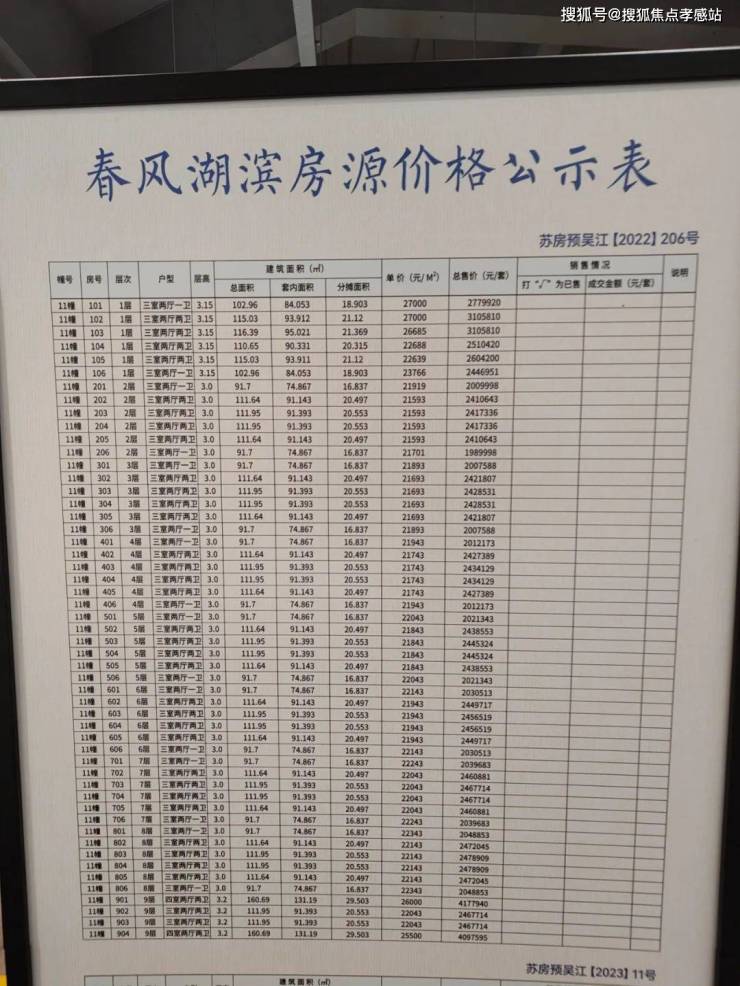 搜狐号@搜狐焦点孝感站
春风湖滨房源价格公示表
苏房预吴江【2022】206号
幢号 房号 层次 户型 层高 建筑面积（㎡） 单价（元/M²） 总售价（元/套） 销售情况 说明
总面积 套内面积 分摊面积 打“√”为已售 成交金额（元/套）
11幢 101 1层 三室两厅一卫 3.15 102.96 84.053 18.903 27000 2779920
11幢 102 1层 三室两厅两卫 3.15 115.03 93.912 21.12 27000 3105810
11幢 103 1层 三室两厅两卫 3.15 116.39 95.021 21.369 26685 3105810
11幢 104 1层 三室两厅两卫 3.15 110.65 90.331 20.315 22688 2510420
11幢 105 1层 三室两厅两卫 3.15 115.03 93.911 21.12 22639 2604200
11幢 106 1层 三室两厅一卫 3.15 102.96 84.053 18.903 23766 2446951
11幢 201 2层 三室两厅一卫 3.0 91.7 74.867 16.837 21919 2009998
11幢 202 2层 三室两厅两卫 3.0 111.64 91.143 20.497 21593 2410643
11幢 203 2层 三室两厅两卫 3.0 111.95 91.393 20.553 21593 2417336
11幢 204 2层 三室两厅两卫 3.0 111.95 91.393 20.553 21593 2417336
11幢 205 2层 三室两厅两卫 3.0 111.64 91.143 20.497 21593 2410643
11幢 206 2层 三室两厅一卫 3.0 91.7 74.867 16.837 21701 1989998
11幢 301 3层 三室两厅一卫 3.0 91.7 74.867 16.837 21893 2007588
11幢 302 3层 三室两厅两卫 3.0 111.64 91.143 20.497 21693 2421807
11幢 303 3层 三室两厅两卫 3.0 111.95 91.393 20.553 21693 2428531
11幢 304 3层 三室两厅两卫 3.0 111.95 91.393 20.553 21693 2428531
11幢 305 3层 三室两厅两卫 3.0 111.64 91.143 20.497 21693 2421807
11幢 306 3层 三室两厅一卫 3.0 91.7 74.867 16.837 21893 2007588
11幢 401 4层 三室两厅一卫 3.0 91.7 74.867 16.837 21943 2012173
11幢 402 4层 三室两厅两卫 3.0 111.64 91.143 20.497 21743 2427389
11幢 403 4层 三室两厅两卫 3.0 111.95 91.393 20.553 21743 2434129
11幢 404 4层 三室两厅两卫 3.0 111.95 91.393 20.553 21743 2434129
11幢 405 4层 三室两厅两卫 3.0 111.64 91.143 20.497 21743 2427389
11幢 406 4层 三室两厅一卫 3.0 91.7 74.867 16.837 21943 2012173
11幢 501 5层 三室两厅一卫 3.0 91.7 74.867 16.837 22043 2021343
11幢 502 5层 三室两厅两卫 3.0 111.64 91.143 20.497 21843 2438553
11幢 503 5层 三室两厅两卫 3.0 111.95 91.393 20.553 21843 2445324
11幢 504 5层 三室两厅两卫 3.0 111.95 91.393 20.553 21843 2445324
11幢 505 5层 三室两厅两卫 3.0 111.64 91.143 20.497 21843 2438553
11幢 506 5层 三室两厅一卫 3.0 91.7 74.867 16.837 22043 2021343
11幢 601 6层 三室两厅一卫 3.0 91.7 74.867 16.837 22143 2030513
11幢 602 6层 三室两厅两卫 3.0 111.64 91.143 20.497 21943 2449717
11幢 603 6层 三室两厅两卫 3.0 111.95 91.393 20.553 21943 2456519
11幢 604 6层 三室两厅两卫 3.0 111.95 91.393 20.553 21943 2456519
11幢 605 6层 三室两厅两卫 3.0 111.64 91.143 20.497 21943 2449717
11幢 606 6层 三室两厅一卫 3.0 91.7 74.867 16.837 22143 2030513
11幢 701 7层 三室两厅一卫 3.0 91.7 74.867 16.837 22243 2039683
11幢 702 7层 三室两厅两卫 3.0 111.64 91.143 20.497 22043 2460881
11幢 703 7层 三室两厅两卫 3.0 111.95 91.393 20.553 22043 2467714
11幢 704 7层 三室两厅两卫 3.0 111.95 91.393 20.553 22043 2467714
11幢 705 7层 三室两厅两卫 3.0 111.64 91.143 20.497 22043 2460881
11幢 706 7层 三室两厅一卫 3.0 91.7 74.867 16.837 22243 2039683
11幢 801 8层 三室两厅一卫 3.0 91.7 74.867 16.837 22343 2048853
11幢 802 8层 三室两厅两卫 3.0 111.64 91.143 20.497 22143 2472045
11幢 803 8层 三室两厅两卫 3.0 111.95 91.393 20.553 22143 2478909
11幢 804 8层 三室两厅两卫 3.0 111.95 91.393 20.553 22143 2478909
11幢 805 8层 三室两厅两卫 3.0 111.64 91.143 20.497 22143 2472045
11幢 806 8层 三室两厅一卫 3.0 91.7 74.867 16.837 22343 2048853
11幢 901 9层 四室两厅两卫 3.2 160.69 131.19 29.503 26000 4177940
11幢 902 9层 三室两厅两卫 3.2 111.95 91.393 20.553 22043 2467714
11幢 903 9层 三室两厅两卫 3.2 111.95 91.393 20.553 22043 2467714
11幢 904 9层 四室两厅两卫 3.2 160.69 131.19 29.503 25500 4097595
苏房预吴江【2023】11号
建筑面积（㎡）